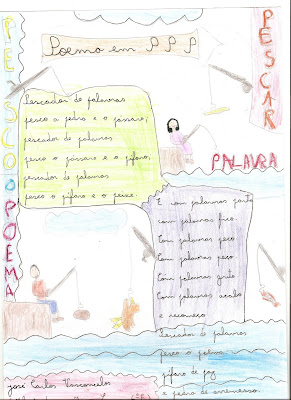 PESCO O POEMA
Poema em P P P
PESCAR
PALAVRA
Pescador de palavras
pesco a pedra e o pássaro,
pescador de palavras
pesco o pássaro e o pífaro,
pescador de palavras
pesco o pífaro e o peixe.
E com palavras grito
com palavras fico
Com palavras peco
Com palavras peço
Com palavras grito
Com palavras acabo
e recomeço
Pescador de palavras
pesco a palma
pífaro de paz
e pedra de arremesso.
José Carlos Vasconcelos